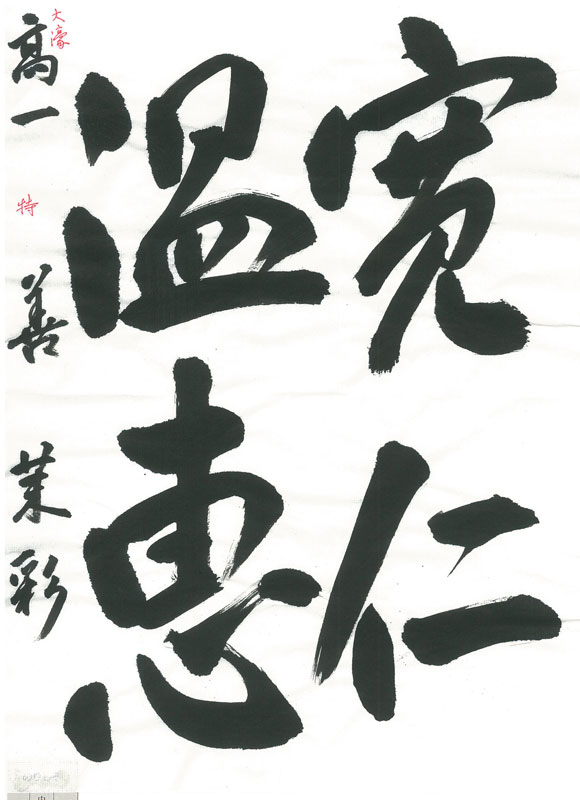 寛仁
温恵
大濠
高一 特 善 茉彩